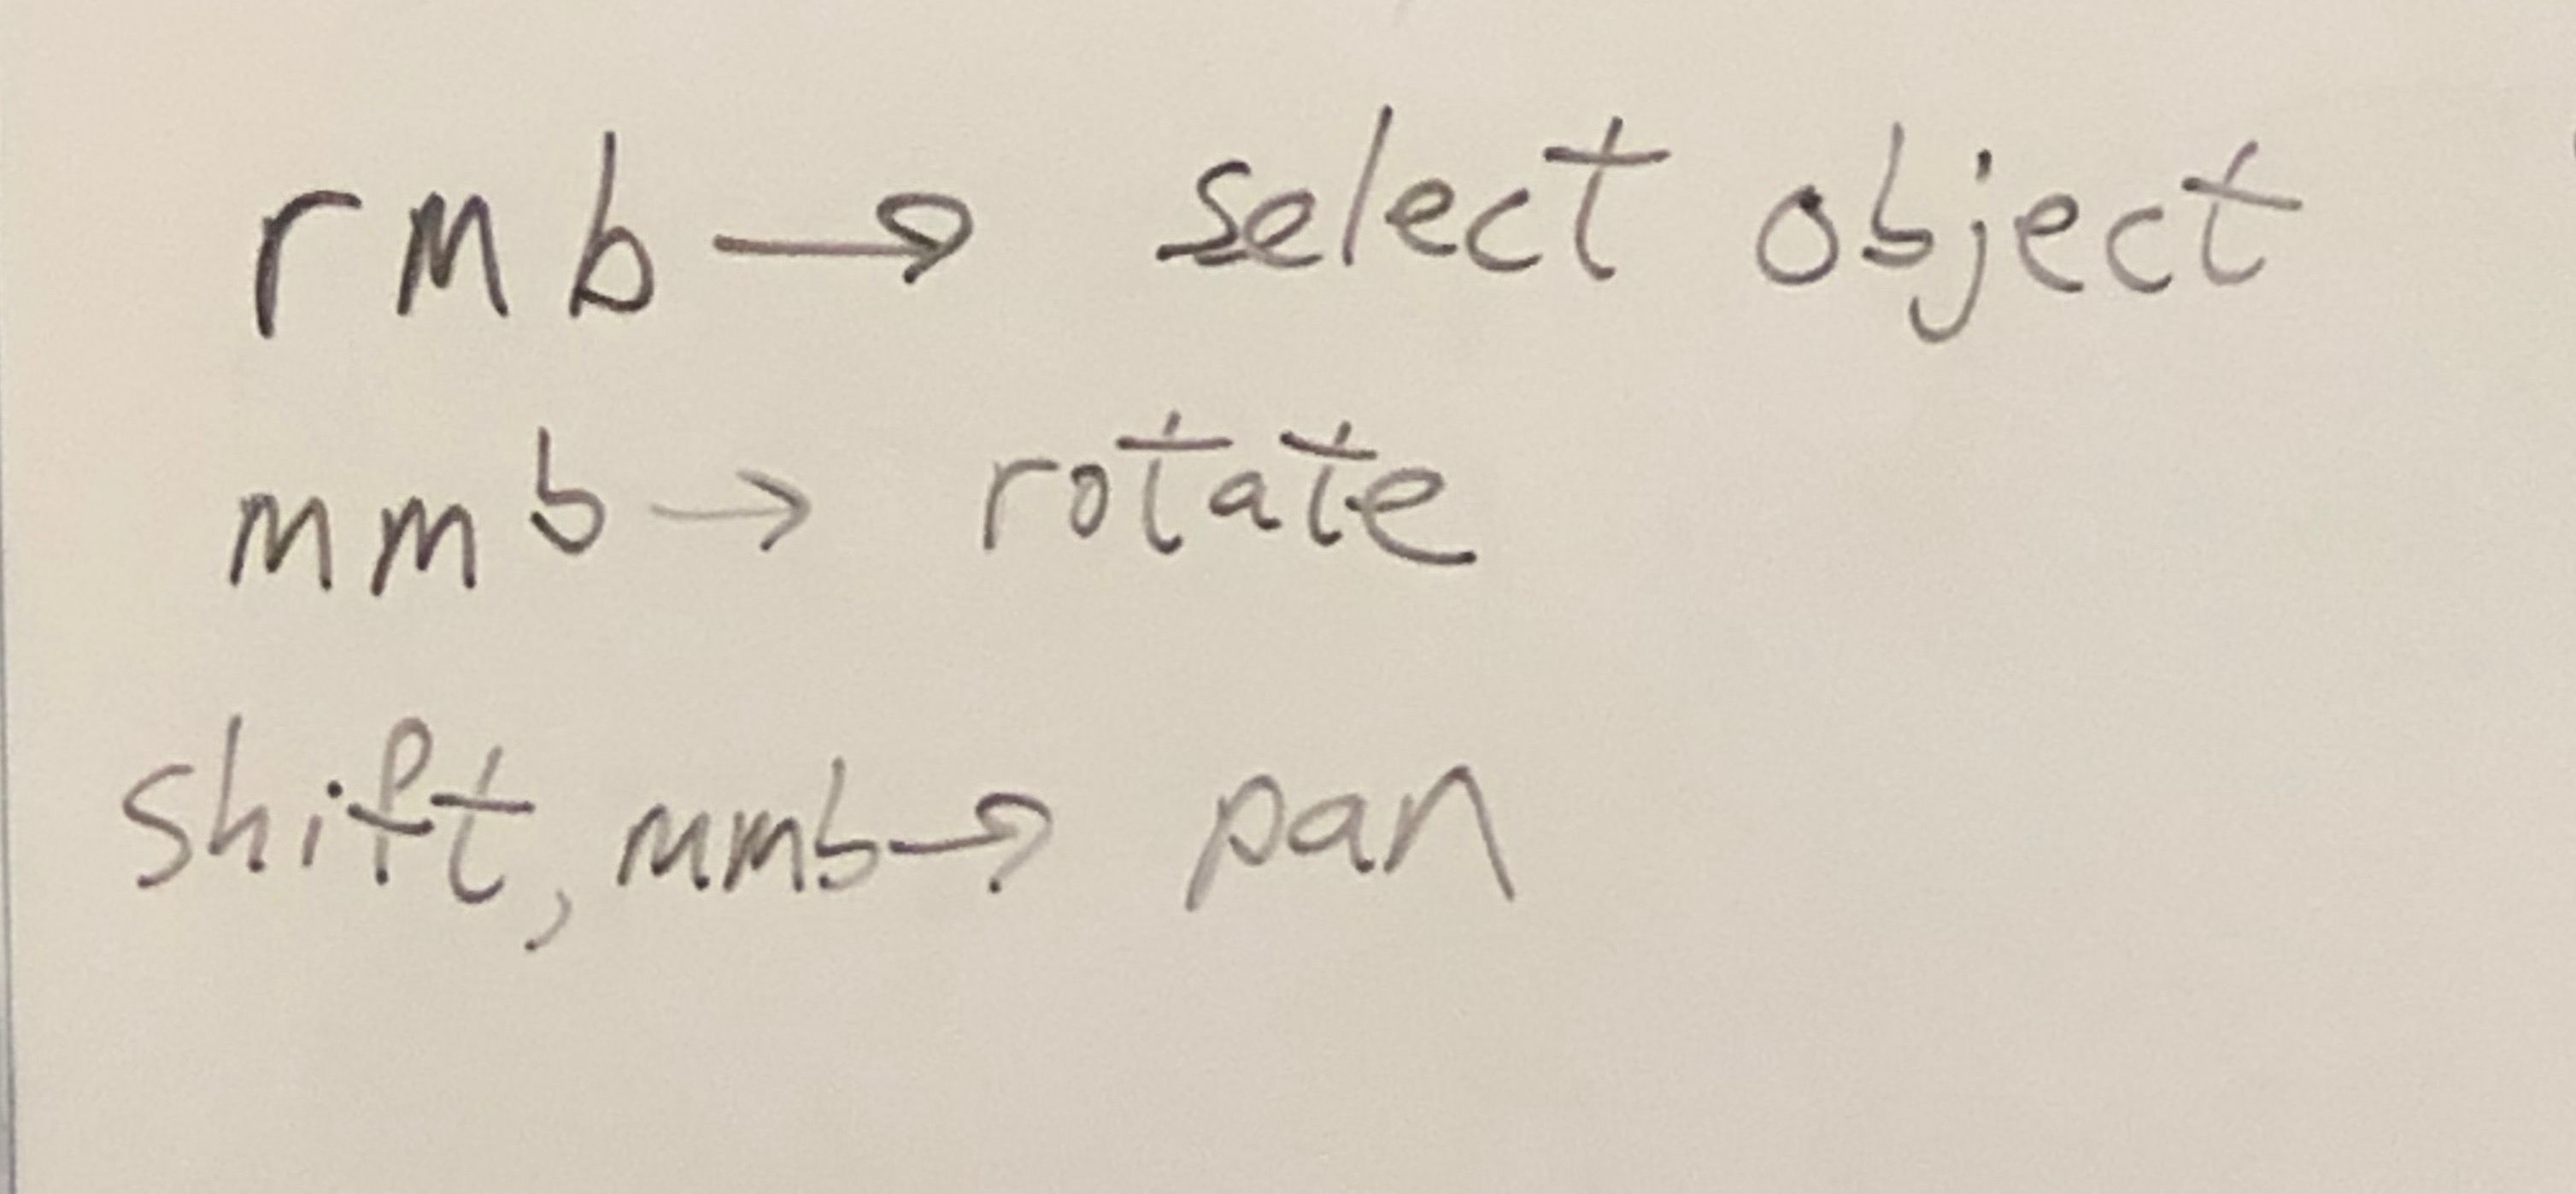 rmb → select object
mmb → rotate
shift, mmb → pan